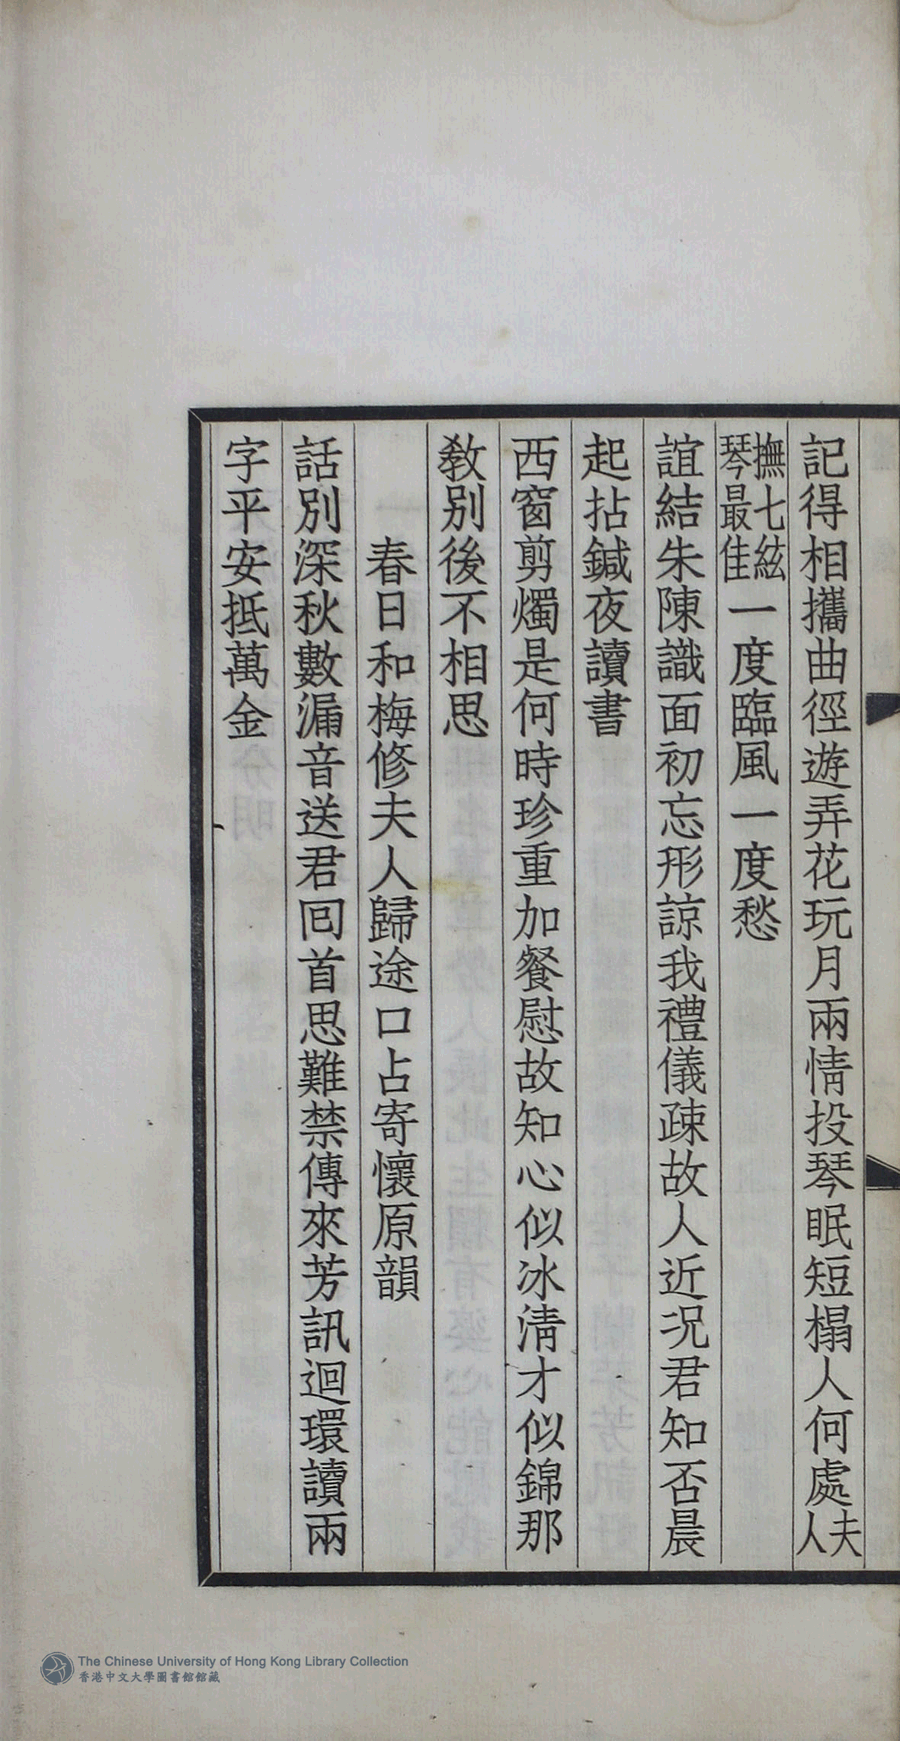 記得相攜曲徑遊弄花玩月兩情投琴眠短榻人何處夫人
撫七絃琴最佳一度臨風一度愁
誼結朱陳識面初忘形諒我禮儀疎故人近況君知否晨
起拈鍼夜讀書
西窗剪燭是何時珍重加餐慰故知心似冰清才似錦那
教別後不相思
春日和梅修夫人歸途口占寄懷原韻
話別深秋數漏音送君囘首思難禁傳來芳訊迴環讀兩
字平安抵萬金
The Chinese University of Hong Kong Library Collection
香港中文大學圖書館館藏